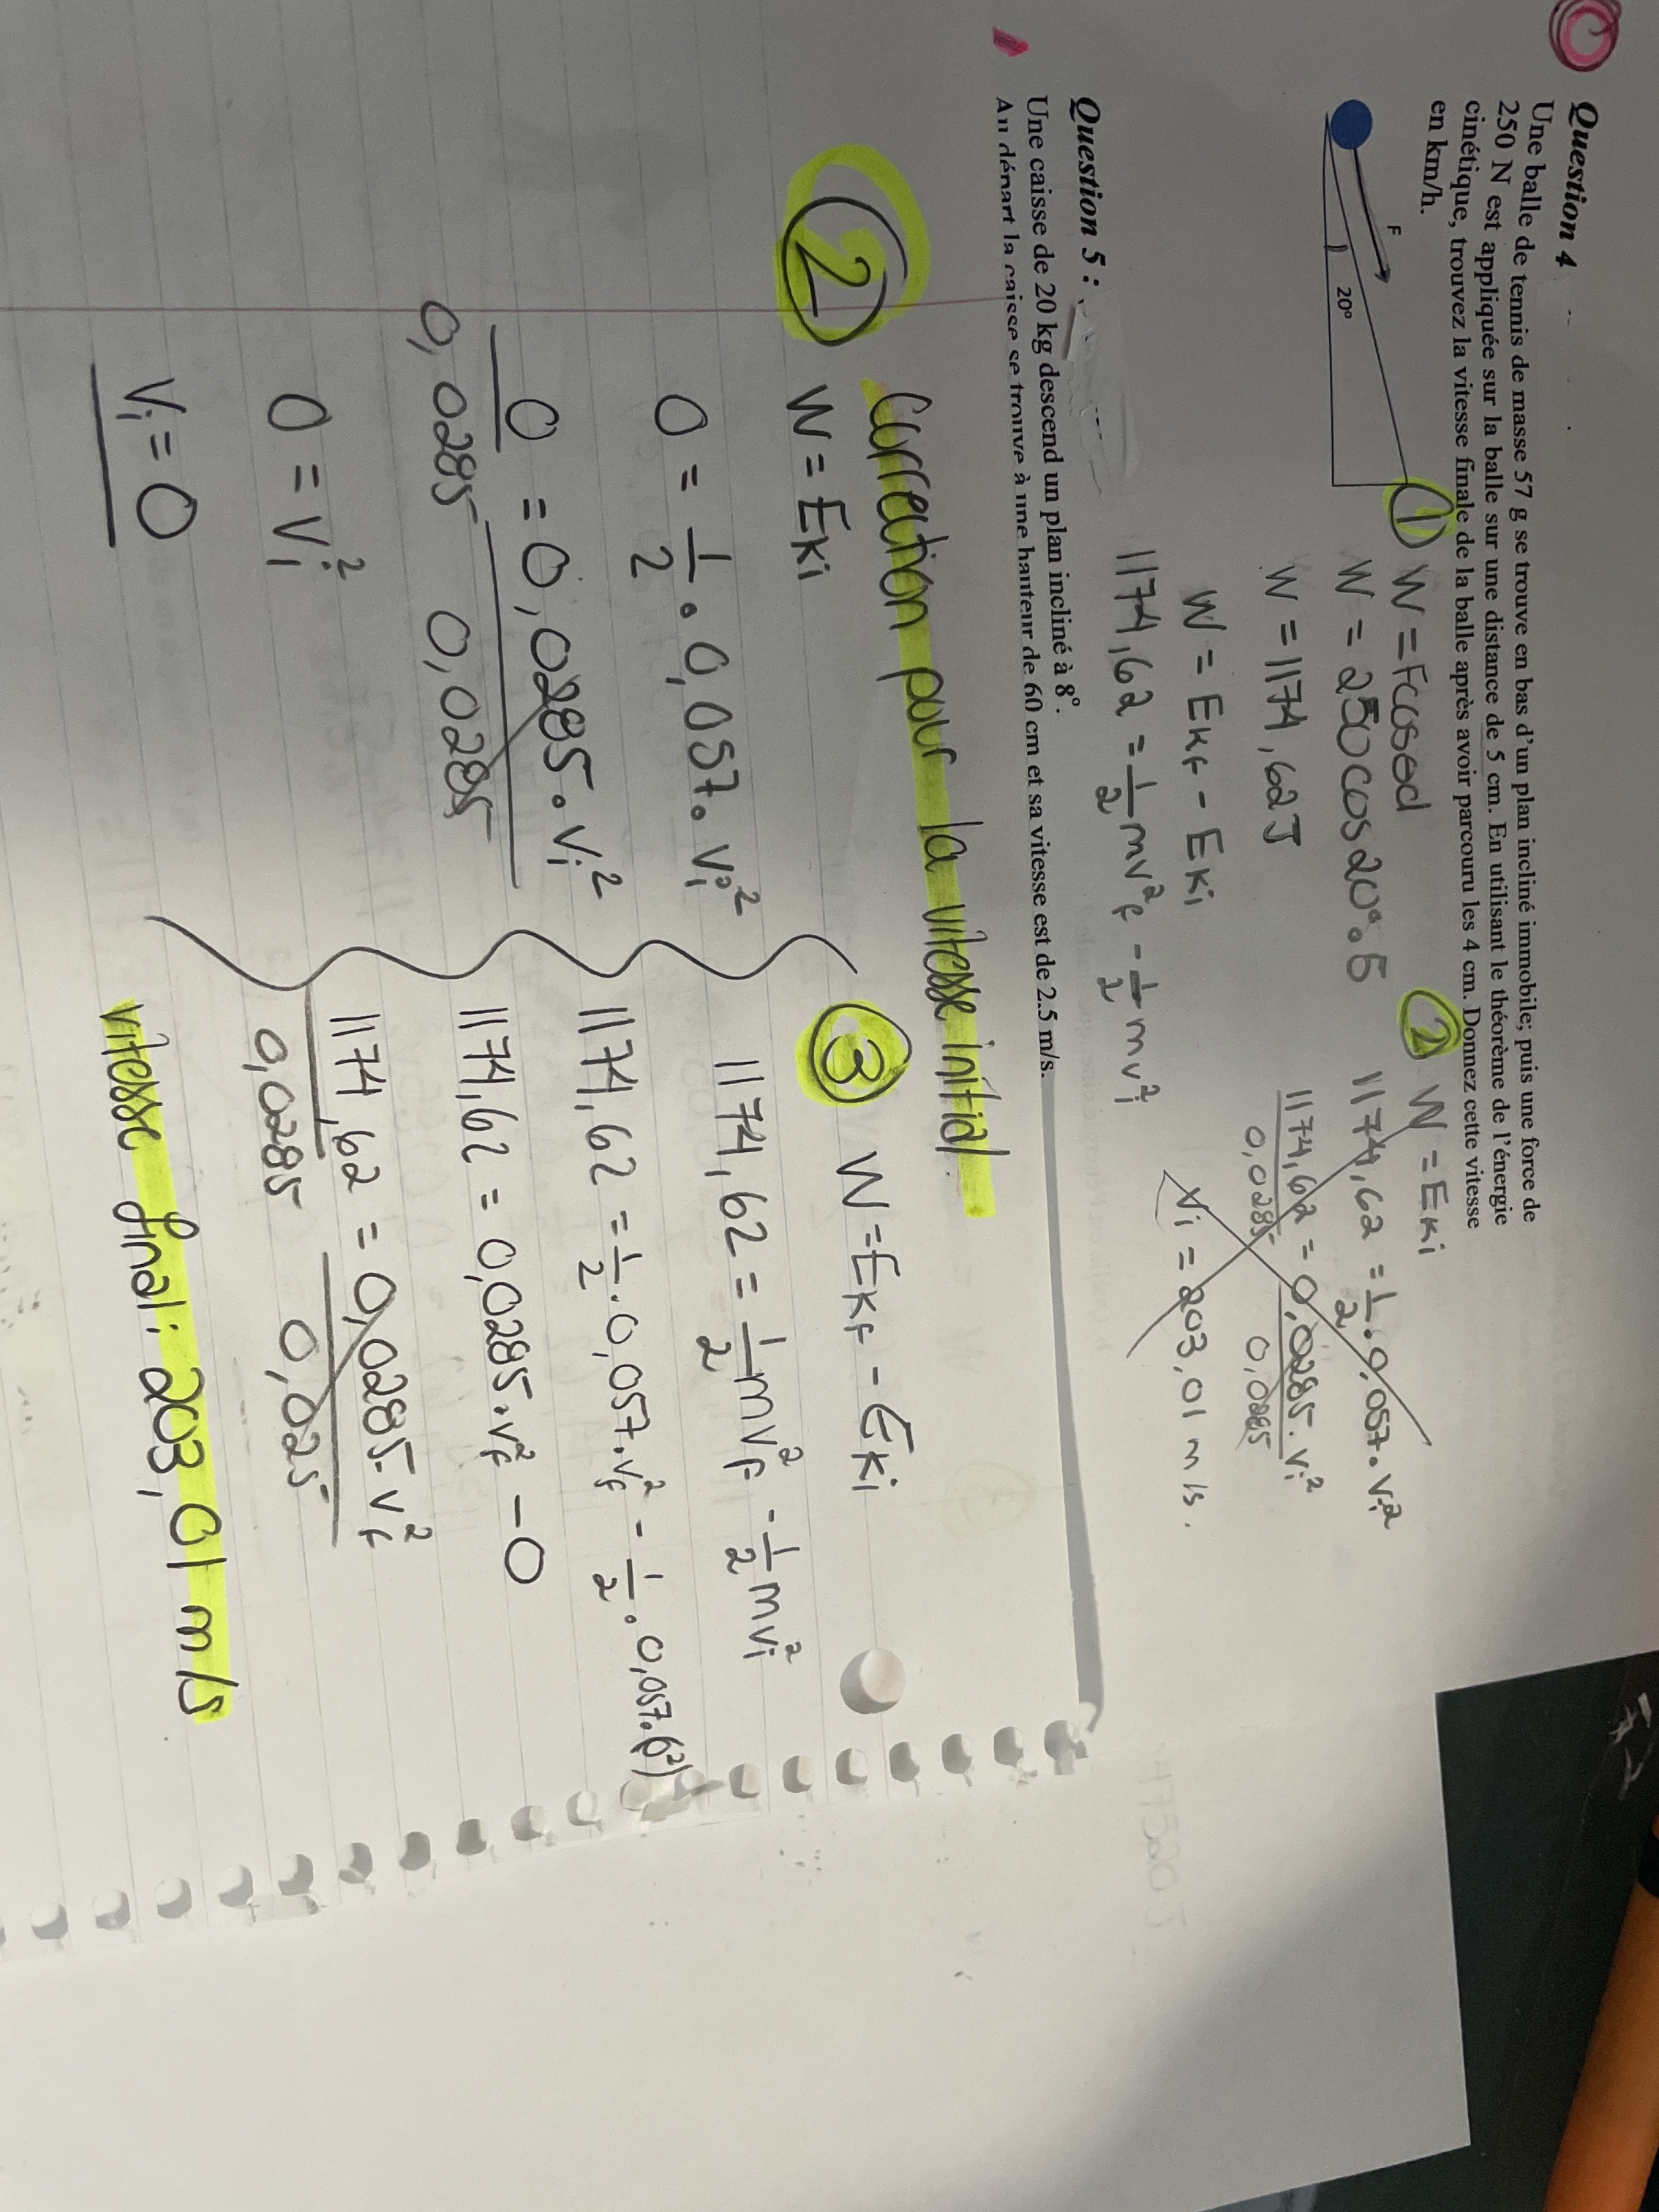 Question 4
Une balle de tennis de masse 57 g se trouve en bas d'un plan incliné immobile; puis une force de
250 N est appliquée sur la balle sur une distance de 5 cm. En utilisant le théorème de l'énergie
cinétique, trouvez la vitesse finale de la balle après avoir parcouru les 4 cm. Donnez cette vitesse
en km/h.
F
20°
① W = Fcosθd
W = 250cos20°·5
W = 1174,62J
W = EKf - EKi
1174,62 = 1/2 mv²f - 1/2 mv²i
② W = EKi
1174,62 = 1/2 · 0,057 · vi²
1174,62 / 0,0285 = 0,0285 · vi² / 0,0285
vi = 203,01 m/s.
Question 5 :
Une caisse de 20 kg descend un plan incliné à 8°.
Au départ la caisse se trouve à une hauteur de 60 cm et sa vitesse est de 2.5 m/s.
Correction pour la vitesse initial
② W = EKi
0 = 1/2 · 0,057 · vi²
0 / 0,0285 = 0,0285 · vi² / 0,0285
0 = vi²
vi = 0
③ W = EKf - EKi
1174,62 = 1/2 mvf² - 1/2 mvi²
1174,62 = 1/2 · 0,057 · vf² - 1/2 · 0,057 · (0²)
1174,62 = 0,0285 · vf² - 0
1174,62 / 0,0285 = 0,0285 · vf² / 0,025
vitesse final : 203,01 m/s